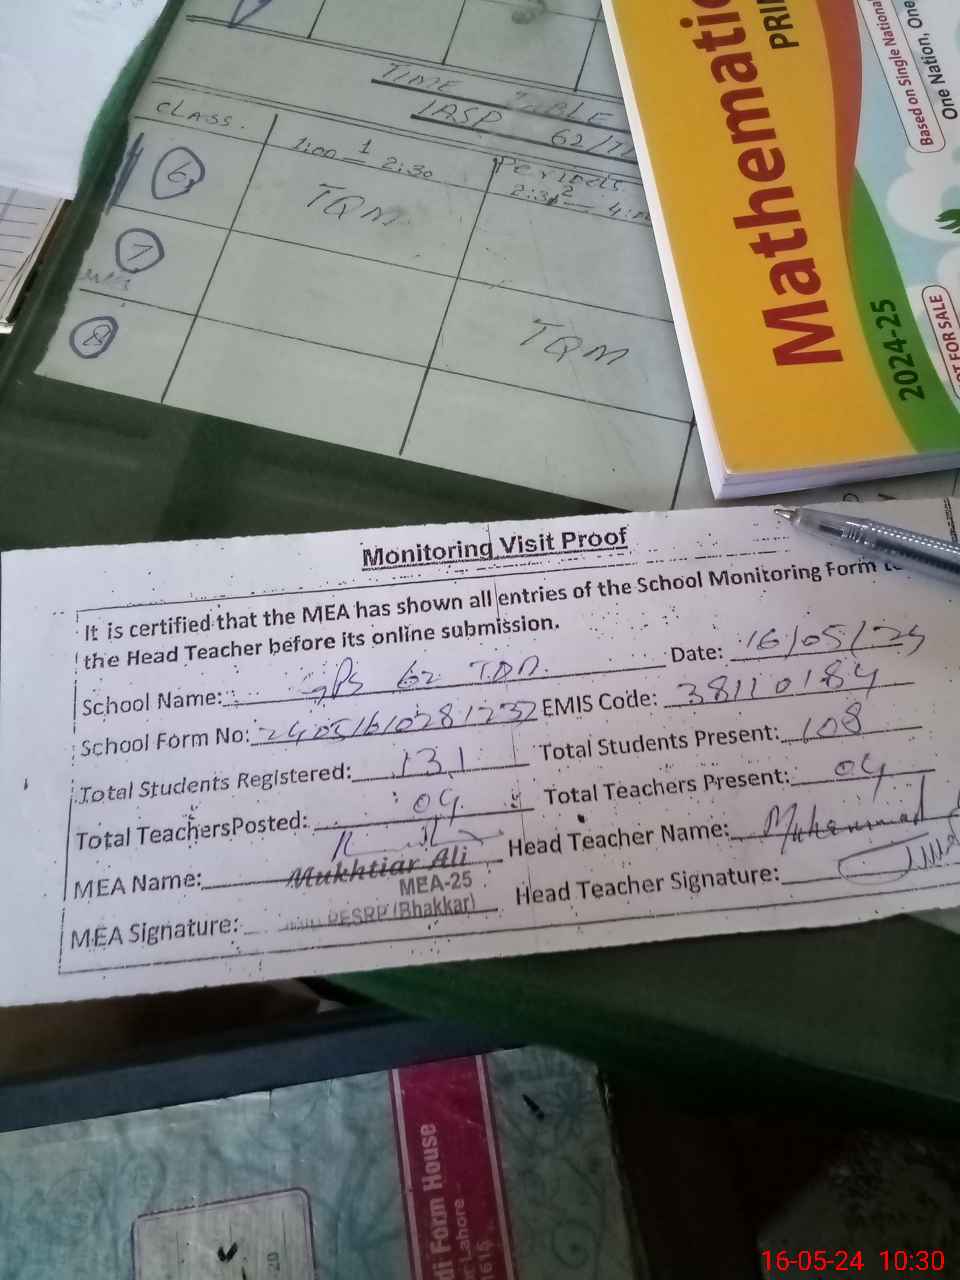 TIME TABLE
IASP 62/TD
CLASS.
1
1:00 — 2:30
Periods
2
2:30 — 4:00
6
TQM
7
8
TQM
Mathematic
PRI
Based on Single National
One Nation, One
2024-25
OT FOR SALE
Monitoring Visit Proof
It is certified that the MEA has shown all entries of the School Monitoring Form to
the Head Teacher before its online submission.
School Name: GPS 62 TDA. Date: 16/05/24
School Form No: 24051610281232 EMIS Code: 38110184
Total Students Registered: 131 Total Students Present: 108
Total TeachersPosted: 04 Total Teachers Present: 04
MEA Name: Mukhtiar Ali Head Teacher Name: Muhammad
MEA-25
MEA Signature: PESRP (Bhakkar) Head Teacher Signature:
di Form House
r Lahore
16-05-24 10:30